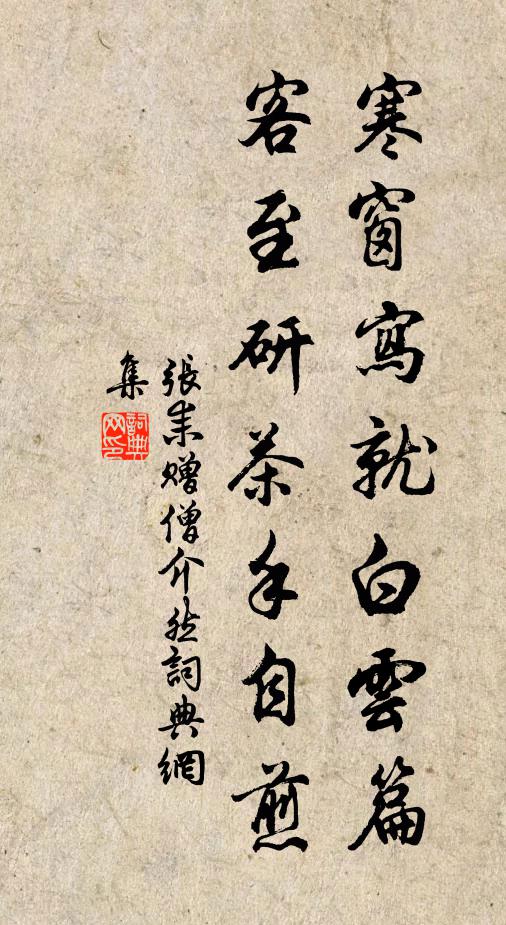 寒窗寫就白雲篇
客至研茶手自煎
張耒贈僧介然詞典網
集
詞典网印